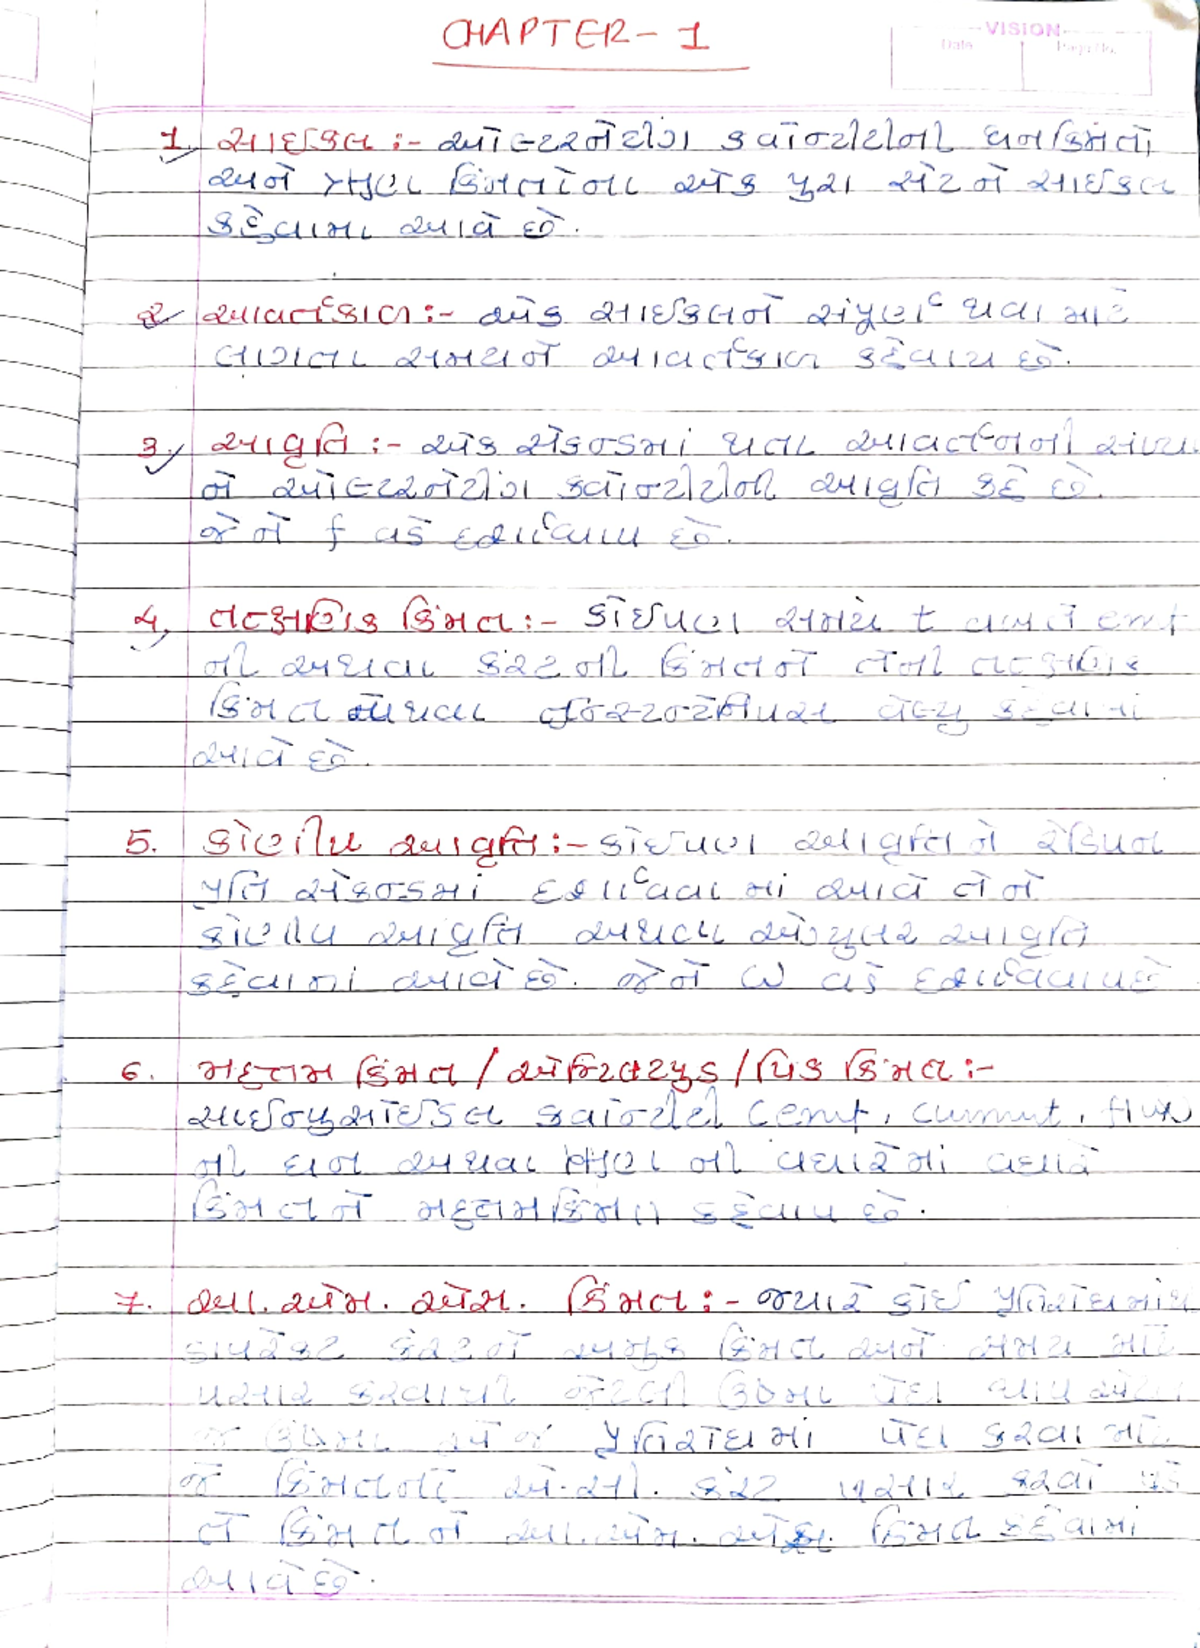 CHAPTER - 1
VISION
Date
Page No.
1. સાઇકલ :- ઓલ્ટરનેટીંગ ક્વોન્ટીટીની ધન કિંમતો
અને ઋણ કિંમતોના એક પુરા સેટને સાઇકલ
કહેવામા આવે છે.
2 આવર્તકાળ :- એક સાઇકલને સંપુર્ણ થવા માટે
લાગતા સમયને આવર્તકાળ કહેવાય છે.
3. આવૃતિ :- એક સેકન્ડમાં થતા આવર્તનની સંખ્યા
ને ઓલ્ટરનેટીંગ ક્વોન્ટીટીની આવૃતિ કહે છે.
જેને f વડે દર્શાવાય છે.
4. તત્ક્ષણિક કિંમત :- કોઈપણ સમયે t વખતે emf
ની અથવા કરંટની કિંમતને તેની તત્ક્ષણિક
કિંમત અથવા ઇન્સ્ટન્ટેનિયસ વેલ્યુ કહેવામાં
આવે છે.
5. કોણીય આવૃત્તિ :- કોઈપણ આવૃત્તિને રેડિયન
પ્રતિ સેકન્ડમાં દર્શાવવામાં આવે તેને
કોણીય આવૃતિ અથવા એંગ્યુલર આવૃતિ
કહેવામાં આવે છે. જેને ω વડે દર્શાવાય છે
6. મહતમ કિંમત / એમ્પ્લિટ્યુડ / પિક કિંમત :-
સાઇન્યુસોઇડલ ક્વોન્ટીટી (emf, current, flux)
ની ધન અથવા ઋણ ની વધારેમાં વધારે
કિંમતને મહતમ કિંમત કહેવાય છે.
7. આર. એમ. એસ. કિંમત :- જ્યારે કોઈ પ્રતિરોધમાંથી
ડાયરેક્ટ કરંટને અમુક કિંમત અને સમય માટે
પસાર કરવાથી જેટલી ઉષ્મા પેદા થાય એટલી
જ ઉષ્મા એ જ પ્રતિરોધમાં પેદા કરવા માટે
જે કિંમતનો એ.સી. કરંટ પસાર કરવો પડે
તે કિંમતને આર.એમ.એસ. કિંમત કહેવામાં
આવે છે.